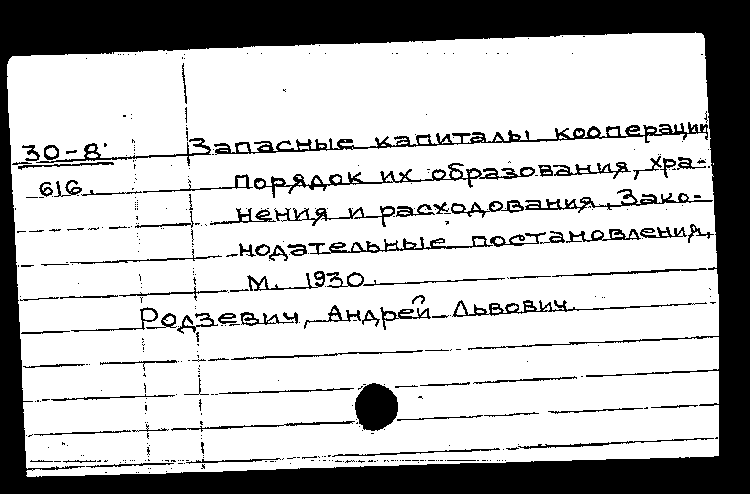 30-8. Запасные капиталы кооперации
616. порядок их образования, хра-
нения и расходования. Зако-
нодательные постановления.
М. 1930.
Родзевич, Андрей Львович.